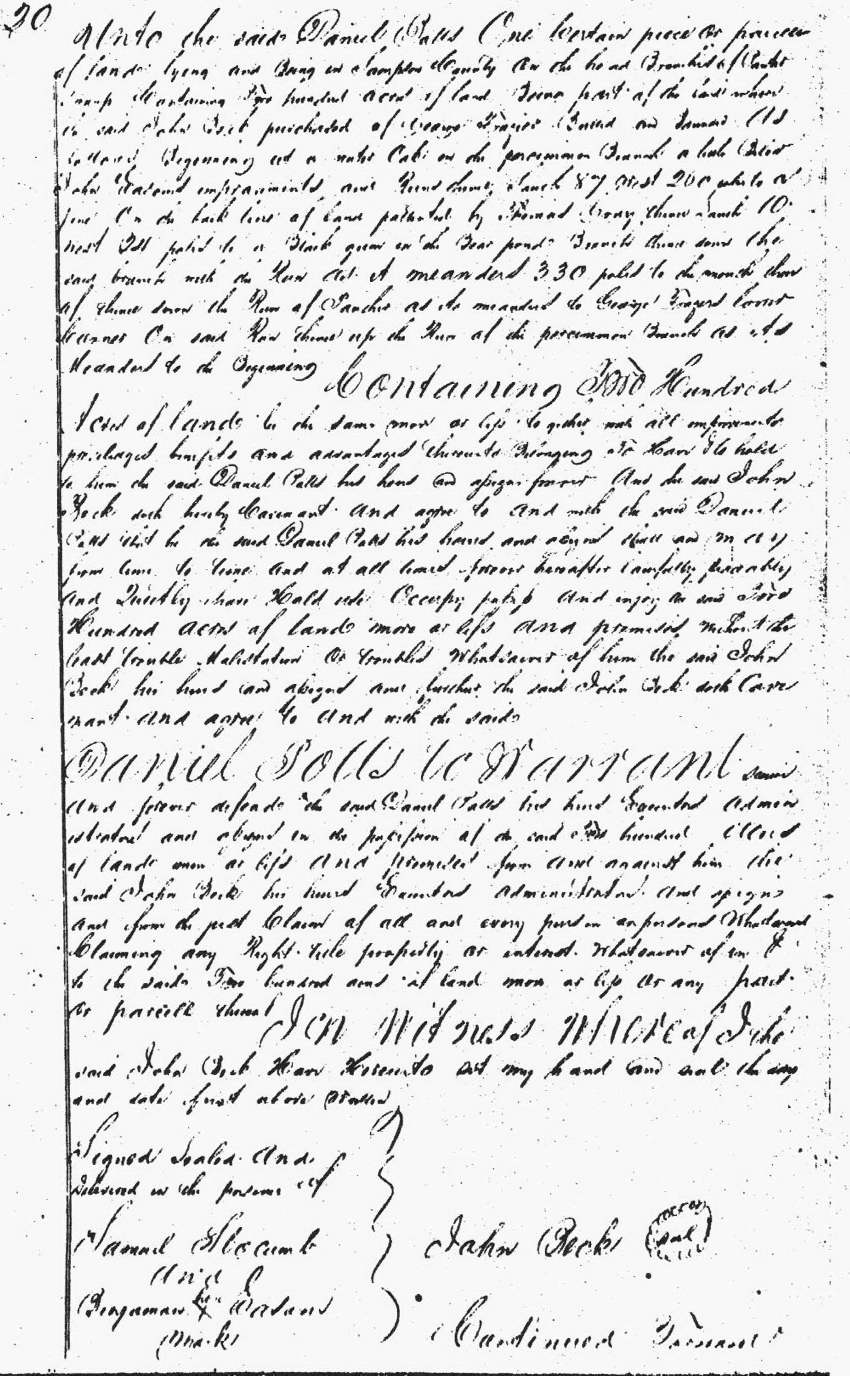 20
Unto the said Daniel Potts One Certain piece or parcel
of land lying and Being in Sampson County on the head Branches of
Swamp Containing Two hundred acres of land Being part of the land where
the said John Beck purchased of George Frazier Butted and Bounded As
follows Beginning at a water Oak on the persimmon Branch a little Below
John Easons improvements and Runs thence South 87 West 200 poles to a
pine On the back line of land patented by Thomas Gray thence South 10
West 251 poles to a Black gum in the Bear pond Branch thence down the
said branch with the Run as it meanders 330 poles to the mouth there
of thence down the Run of as its meanders to George Frazers lower
Corner On said Run thence up the Run of the persemmon Branch as its
Meanders to the Beginning Containing Two Hundred
Acres of land be the same more or less together with all improvements
privileges benefits and advantages thereunto Belonging To Have & to hold
to him the said Daniel Potts his heirs and assigns forever And the said John
Beck doth hereby Covenant and agree to and with the said Daniel
Potts that he the said Daniel Potts his heirs and assigns shall and may
from time to time and at all times forever hereafter Lawfully peaceably
and Quietly have Hold use Occupy posses and enjoy the said Two
Hundred acres of land more or less and premises without the
least trouble Malistation or troubles Whatsoever of him the said John
Beck his heirs and assigns and further the said John Beck doth Cove
nant and agree to and with the said
Daniel Potts to Warrant
and forever defend the said Daniel Potts his heirs Executors Admin
istrators and assigns in the possession of the said Two hundred Acres
of land more or less and premises from and against him the
said John Beck his heirs Executors administrators and assigns
and from the just Claim of all and every person or persons Whatsoever
Claiming any Right title property or interest Whatsoever of in &
to the said Two hundred acres of land more or less or any part
or parcell thereof In Witness Whereof I the
said John Beck Have Hereunto set my hand and seal the day
and date first above Written
Signed Sealed and
Delivered in the presence of
Samuel Slocumb
And
John Beck seal
Bengaman his X Easons
mark
Continued Forward